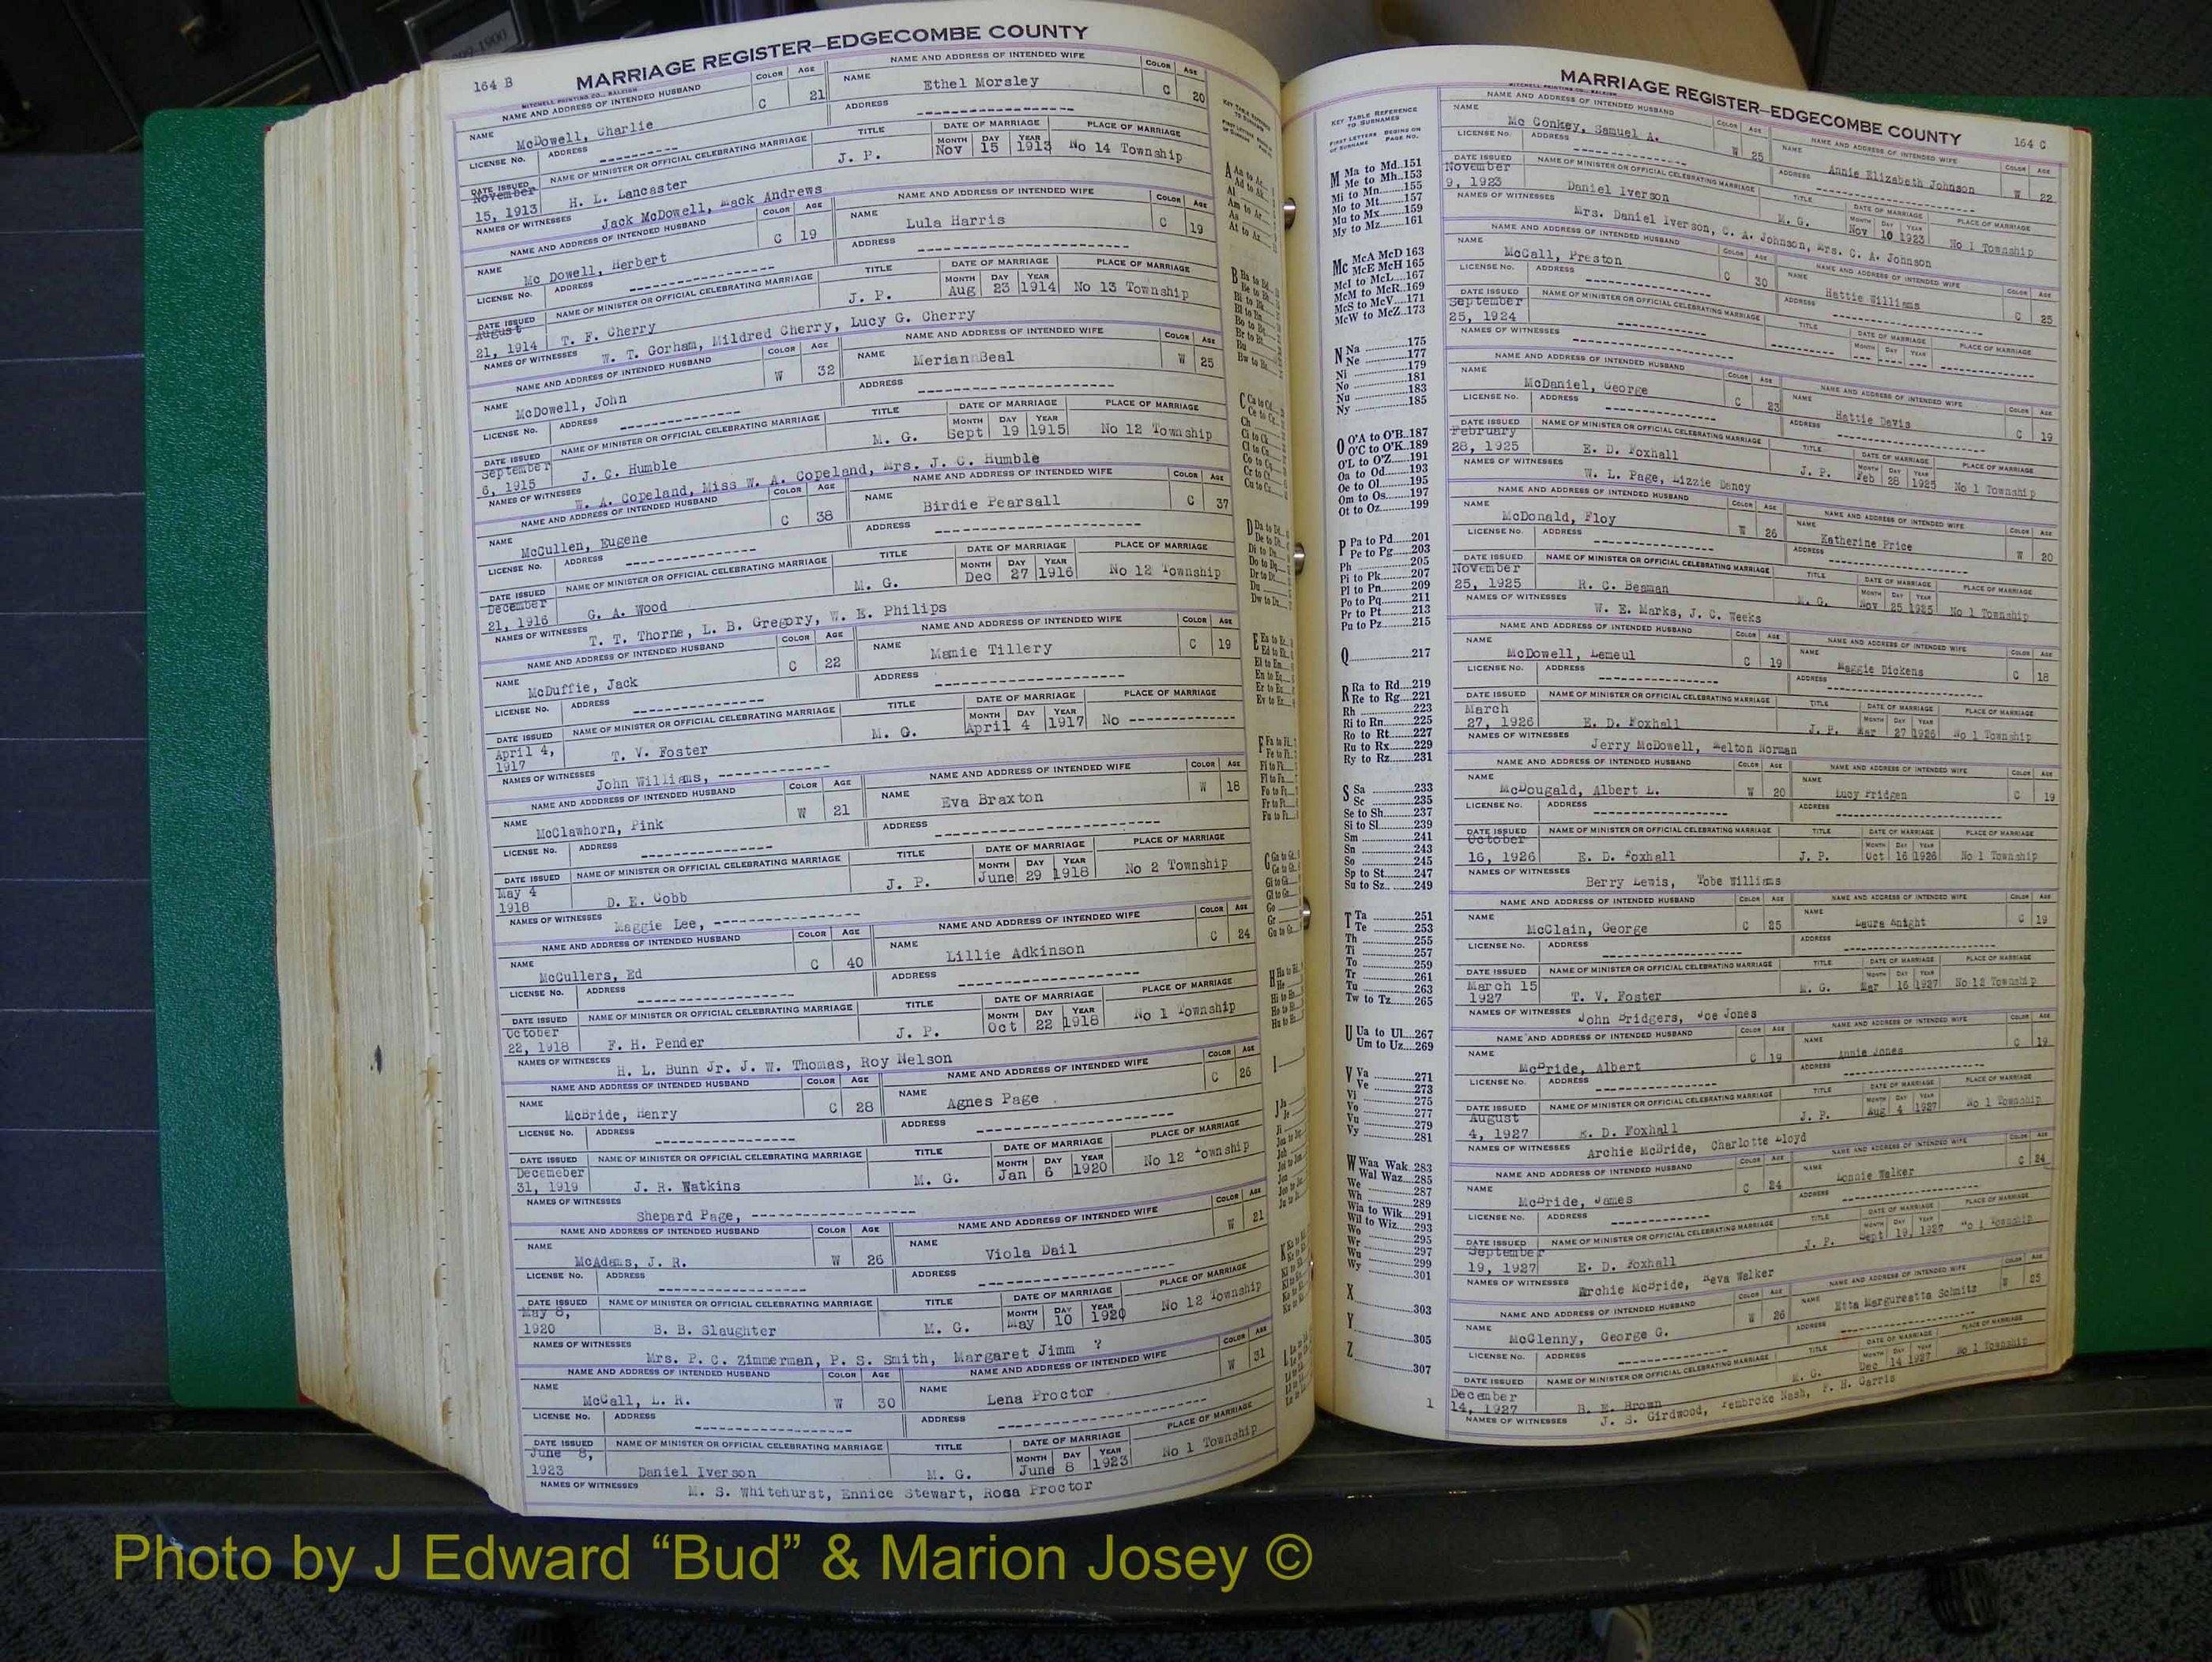 1899-1900
164 B
MARRIAGE REGISTER—EDGECOMBE COUNTY
MITCHELL PRINTING CO., RALEIGH
NAME AND ADDRESS OF INTENDED HUSBAND COLOR AGE NAME AND ADDRESS OF INTENDED WIFE COLOR AGE
NAME McDowell, Charlie C 21 NAME Ethel Morsley C 20
LICENSE No. ADDRESS ADDRESS
DATE ISSUED NAME OF MINISTER OR OFFICIAL CELEBRATING MARRIAGE TITLE DATE OF MARRIAGE PLACE OF MARRIAGE
MONTH DAY YEAR
November 15, 1913 H. L. Lancaster J. P. Nov 15 1913 No 14 Township
NAMES OF WITNESSES Jack McDowell, Mack Andrews
NAME AND ADDRESS OF INTENDED HUSBAND COLOR AGE NAME AND ADDRESS OF INTENDED WIFE COLOR AGE
NAME Mc Dowell, Herbert C 19 NAME Lula Harris C 19
LICENSE No. ADDRESS ADDRESS
DATE ISSUED NAME OF MINISTER OR OFFICIAL CELEBRATING MARRIAGE TITLE DATE OF MARRIAGE PLACE OF MARRIAGE
MONTH DAY YEAR
August 21, 1914 T. F. Cherry J. P. Aug 23 1914 No 13 Township
NAMES OF WITNESSES W. T. Gorham, Mildred Cherry, Lucy G. Cherry
NAME AND ADDRESS OF INTENDED HUSBAND COLOR AGE NAME AND ADDRESS OF INTENDED WIFE COLOR AGE
NAME McDowell, John W 32 NAME MeriannBeal W 25
LICENSE No. ADDRESS ADDRESS
DATE ISSUED NAME OF MINISTER OR OFFICIAL CELEBRATING MARRIAGE TITLE DATE OF MARRIAGE PLACE OF MARRIAGE
MONTH DAY YEAR
September 6, 1915 J. C. Humble M. G. Sept 19 1915 No 12 Township
NAMES OF WITNESSES W. A. Copeland, Miss W. A. Copeland, Mrs. J. C. Humble
NAME AND ADDRESS OF INTENDED HUSBAND COLOR AGE NAME AND ADDRESS OF INTENDED WIFE COLOR AGE
NAME McCullen, Eugene C 38 NAME Birdie Pearsall C 37
LICENSE No. ADDRESS ADDRESS
DATE ISSUED NAME OF MINISTER OR OFFICIAL CELEBRATING MARRIAGE TITLE DATE OF MARRIAGE PLACE OF MARRIAGE
MONTH DAY YEAR
December 21, 1916 G. A. Wood M. G. Dec 27 1916 No 12 Township
NAMES OF WITNESSES T. T. Thorne, L. B. Gregory, W. E. Philips
NAME AND ADDRESS OF INTENDED HUSBAND COLOR AGE NAME AND ADDRESS OF INTENDED WIFE COLOR AGE
NAME McDuffie, Jack C 22 NAME Mamie Tillery C 19
LICENSE No. ADDRESS ADDRESS
DATE ISSUED NAME OF MINISTER OR OFFICIAL CELEBRATING MARRIAGE TITLE DATE OF MARRIAGE PLACE OF MARRIAGE
MONTH DAY YEAR
April 4, 1917 T. V. Foster M. G. April 4 1917 No
NAMES OF WITNESSES John Williams,
NAME AND ADDRESS OF INTENDED HUSBAND COLOR AGE NAME AND ADDRESS OF INTENDED WIFE COLOR AGE
NAME McClawhorn, Pink W 21 NAME Eva Braxton W 18
LICENSE No. ADDRESS ADDRESS
DATE ISSUED NAME OF MINISTER OR OFFICIAL CELEBRATING MARRIAGE TITLE DATE OF MARRIAGE PLACE OF MARRIAGE
MONTH DAY YEAR
May 4 1918 D. E. Cobb J. P. June 29 1918 No 2 Township
NAMES OF WITNESSES Maggie Lee,
NAME AND ADDRESS OF INTENDED HUSBAND COLOR AGE NAME AND ADDRESS OF INTENDED WIFE COLOR AGE
NAME McCullers, Ed C 40 NAME Lillie Adkinson C 24
LICENSE No. ADDRESS ADDRESS
DATE ISSUED NAME OF MINISTER OR OFFICIAL CELEBRATING MARRIAGE TITLE DATE OF MARRIAGE PLACE OF MARRIAGE
MONTH DAY YEAR
October 22, 1918 F. H. Pender J. P. Oct 22 1918 No 1 Township
NAMES OF WITNESCES H. L. Bunn Jr. J. W. Thomas, Roy Nelson
NAME AND ADDRESS OF INTENDED HUSBAND COLOR AGE NAME AND ADDRESS OF INTENDED WIFE COLOR AGE
NAME McBride, Henry C 28 NAME Agnes Page C 26
LICENSE No. ADDRESS ADDRESS
DATE ISSUED NAME OF MINISTER OR OFFICIAL CELEBRATING MARRIAGE TITLE DATE OF MARRIAGE PLACE OF MARRIAGE
MONTH DAY YEAR
Decemeber 31, 1919 J. R. Watkins M. G. Jan 6 1920 No 12 Township
NAMES OF WITNESSES Shepard Page,
NAME AND ADDRESS OF INTENDED HUSBAND COLOR AGE NAME AND ADDRESS OF INTENDED WIFE COLOR AGE
NAME McAdams, J. R. W 26 NAME Viola Dail W 21
LICENSE No. ADDRESS ADDRESS
DATE ISSUED NAME OF MINISTER OR OFFICIAL CELEBRATING MARRIAGE TITLE DATE OF MARRIAGE PLACE OF MARRIAGE
MONTH DAY YEAR
May 8, 1920 B. B. Slaughter M. G. May 10 1920 No 12 Township
NAMES OF WITNESSES Mrs. P. C. Zimmerman, P. S. Smith, Margaret Jimm ?
NAME AND ADDRESS OF INTENDED HUSBAND COLOR AGE NAME AND ADDRESS OF INTENDED WIFE COLOR AGE
NAME McCall, L. R. W 30 NAME Lena Proctor W 31
LICENSE No. ADDRESS ADDRESS
DATE ISSUED NAME OF MINISTER OR OFFICIAL CELEBRATING MARRIAGE TITLE DATE OF MARRIAGE PLACE OF MARRIAGE
MONTH DAY YEAR
June 8, 1923 Daniel Iverson M. G. June 8 1923 No 1 Township
NAMES OF WITNESSES M. S. Whitehurst, Ennice Stewart, Rosa Proctor
KEY TABLE REFERENCE TO SURNAMES
FIRST LETTERS OF SURNAME BEGINS ON PAGE NO.
M Ma to Md..151
Me to Mh..153
Mi to Mn......155
Mo to Mt......157
Mu to Mx.....159
My to Mz......161
Mc McA McD 163
McE McH 165
McI to McL...167
McM to McR..169
McS to McV....171
McW to McZ..173
N Na 175
Ne 177
Ni 179
No 181
Nu 183
Ny 185
O O'A to O'B..187
O'C to O'K..189
O'L to O'Z....191
Oa to Od......193
Oe to Ol.......195
Om to Os......197
Ot to Oz.......199
P Pa to Pd.....201
Pe to Pg.....203
Ph 205
Pi to Pk.......207
Pl to Pn.......209
Po to Pq.......211
Pr to Pt.......213
Pu to Pz.......215
Q 217
R Ra to Rd....219
Re to Rg....221
Rh 223
Ri to Rn.......225
Ro to Rt.......227
Ru to Rx......229
Ry to Rz.......231
S Sa 233
Sc 235
Se to Sh.......237
Si to Sl........239
Sm 241
Sn 243
So 245
Sp to St.......247
Su to Sz.......249
T Ta 251
Te 253
Th 255
Ti 257
To 259
Tr 261
Tu 263
Tw to Tz......265
U Ua to Ul....267
Um to Uz....269
V Va 271
Ve 273
Vi 275
Vo 277
Vu 279
Vy 281
W Waa Wak..283
Wal Waz....285
We 287
Wh 289
Wia to Wik....291
Wil to Wiz.....293
Wo 295
Wr 297
Wu 299
Wy 301
X 303
Y 305
Z 307
1
MARRIAGE REGISTER—EDGECOMBE COUNTY
164 C
MITCHELL PRINTING CO., RALEIGH
NAME AND ADDRESS OF INTENDED HUSBAND COLOR AGE NAME AND ADDRESS OF INTENDED WIFE COLOR AGE
NAME Mc Conkey, Samuel A. W 25 NAME Annie Elizabeth Johnson W 22
LICENSE No. ADDRESS ADDRESS
DATE ISSUED NAME OF MINISTER OR OFFICIAL CELEBRATING MARRIAGE TITLE DATE OF MARRIAGE PLACE OF MARRIAGE
MONTH DAY YEAR
November 9, 1923 Daniel Iverson M. G. Nov 10 1923 No 1 Township
NAMES OF WITNESSES Mrs. Daniel Iverson, C. A. Johnson, Mrs. C. A. Johnson
NAME AND ADDRESS OF INTENDED HUSBAND COLOR AGE NAME AND ADDRESS OF INTENDED WIFE COLOR AGE
NAME McCall, Preston C 30 NAME Hattie Williams C 25
LICENSE No. ADDRESS ADDRESS
DATE ISSUED NAME OF MINISTER OR OFFICIAL CELEBRATING MARRIAGE TITLE DATE OF MARRIAGE PLACE OF MARRIAGE
MONTH DAY YEAR
September 25, 1924
NAMES OF WITNESSES
NAME AND ADDRESS OF INTENDED HUSBAND COLOR AGE NAME AND ADDRESS OF INTENDED WIFE COLOR AGE
NAME McDaniel, George C 23 NAME Hattie Davis C 19
LICENSE No. ADDRESS ADDRESS
DATE ISSUED NAME OF MINISTER OR OFFICIAL CELEBRATING MARRIAGE TITLE DATE OF MARRIAGE PLACE OF MARRIAGE
MONTH DAY YEAR
February 28, 1925 E. D. Foxhall J. P. Feb 28 1925 No 1 Township
NAMES OF WITNESSES W. L. Page, Lizzie Dancy
NAME AND ADDRESS OF INTENDED HUSBAND COLOR AGE NAME AND ADDRESS OF INTENDED WIFE COLOR AGE
NAME McDonald, Floy W 26 NAME Katherine Price W 20
LICENSE No. ADDRESS ADDRESS
DATE ISSUED NAME OF MINISTER OR OFFICIAL CELEBRATING MARRIAGE TITLE DATE OF MARRIAGE PLACE OF MARRIAGE
MONTH DAY YEAR
November 25, 1925 R. C. Beaman M. G. Nov 25 1925 No 1 Township
NAMES OF WITNESSES W. E. Marks, J. C. Weeks
NAME AND ADDRESS OF INTENDED HUSBAND COLOR AGE NAME AND ADDRESS OF INTENDED WIFE COLOR AGE
NAME McDowell, Lemeul C 19 NAME Maggie Dickens C 18
LICENSE No. ADDRESS ADDRESS
DATE ISSUED NAME OF MINISTER OR OFFICIAL CELEBRATING MARRIAGE TITLE DATE OF MARRIAGE PLACE OF MARRIAGE
MONTH DAY YEAR
March 27, 1926 E. D. Foxhall J. P. Mar 27 1926 No 1 Township
NAMES OF WITNESSES Jerry McDowell, Melton Norman
NAME AND ADDRESS OF INTENDED HUSBAND COLOR AGE NAME AND ADDRESS OF INTENDED WIFE COLOR AGE
NAME McDougald, Albert L. W 20 NAME Lucy Pridgen C 19
LICENSE No. ADDRESS ADDRESS
DATE ISSUED NAME OF MINISTER OR OFFICIAL CELEBRATING MARRIAGE TITLE DATE OF MARRIAGE PLACE OF MARRIAGE
MONTH DAY YEAR
October 16, 1926 E. D. Foxhall J. P. Oct 16 1926 No 1 Township
NAMES OF WITNESSES Berry Lewis, Tobe Williams
NAME AND ADDRESS OF INTENDED HUSBAND COLOR AGE NAME AND ADDRESS OF INTENDED WIFE COLOR AGE
NAME McClain, George C 25 NAME Laura Knight C 19
LICENSE No. ADDRESS ADDRESS
DATE ISSUED NAME OF MINISTER OR OFFICIAL CELEBRATING MARRIAGE TITLE DATE OF MARRIAGE PLACE OF MARRIAGE
MONTH DAY YEAR
March 15 1927 T. V. Foster M. G. Mar 16 1927 No 12 Township
NAMES OF WITNESSES John Bridgers, Joe Jones
NAME AND ADDRESS OF INTENDED HUSBAND COLOR AGE NAME AND ADDRESS OF INTENDED WIFE COLOR AGE
NAME McBride, Albert C 19 NAME Annie Jones C 19
LICENSE No. ADDRESS ADDRESS
DATE ISSUED NAME OF MINISTER OR OFFICIAL CELEBRATING MARRIAGE TITLE DATE OF MARRIAGE PLACE OF MARRIAGE
MONTH DAY YEAR
August 4, 1927 E. D. Foxhall J. P. Aug 4 1927 No 1 Township
NAMES OF WITNESSES Archie McBride, Charlotte Lloyd
NAME AND ADDRESS OF INTENDED HUSBAND COLOR AGE NAME AND ADDRESS OF INTENDED WIFE COLOR AGE
NAME McBride, James C 24 NAME Lonnie Walker C 24
LICENSE No. ADDRESS ADDRESS
DATE ISSUED NAME OF MINISTER OR OFFICIAL CELEBRATING MARRIAGE TITLE DATE OF MARRIAGE PLACE OF MARRIAGE
MONTH DAY YEAR
September 19, 1927 E. D. Foxhall J. P. Sept 19 1927 No 1 Township
NAMES OF WITNESSES Archie McBride, Neva Walker
NAME AND ADDRESS OF INTENDED HUSBAND COLOR AGE NAME AND ADDRESS OF INTENDED WIFE COLOR AGE
NAME McClenny, George G. W 26 NAME Etta Margureatta Schmitz W 25
LICENSE No. ADDRESS ADDRESS
DATE ISSUED NAME OF MINISTER OR OFFICIAL CELEBRATING MARRIAGE TITLE DATE OF MARRIAGE PLACE OF MARRIAGE
December 14, 1927 B. E. Brown M. G. Dec 14 1927 No 1 Township
NAMES OF WITNESSES J. S. Girdwood, Pembroke Nash, F. H. Garris
Photo by J Edward “Bud” & Marion Josey ©